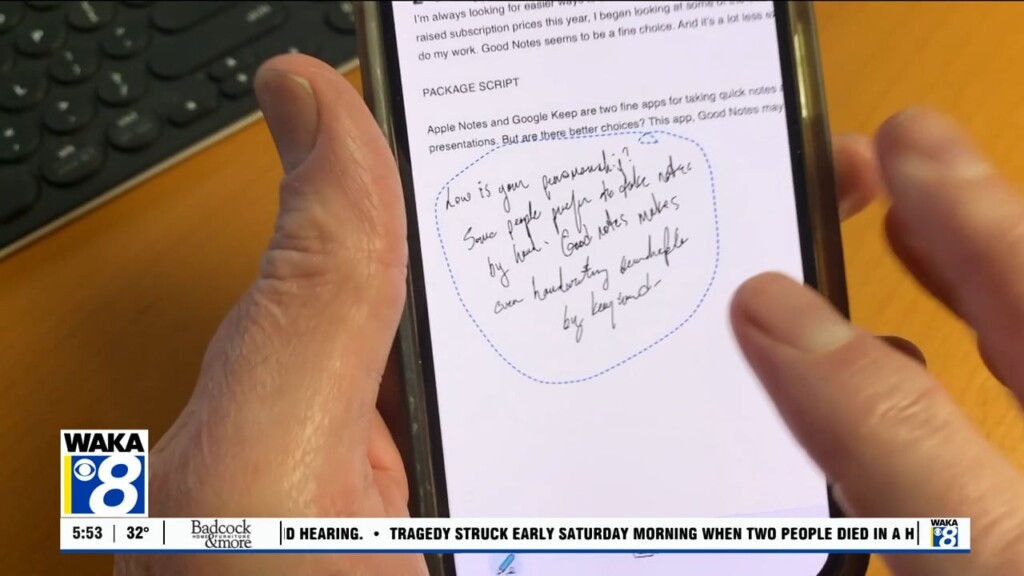 I'm always looking for easier ways
raised subscription prices this year, I began looking at some of
do my work. Good Notes seems to be a fine choice. And it's a lot less
PACKAGE SCRIPT
Apple Notes and Google Keep are two fine apps for taking quick notes
presentations. But are there better choices? This app, Good Notes may
How is your penmanship?
Some people prefer to take notes
by hand. Good notes makes
even handwriting searchable
by keyword.
WAKA
8
5:53 32° Badcock HOME FURNITURE &more D HEARING. • TRAGEDY STRUCK EARLY SATURDAY MORNING WHEN TWO PEOPLE DIED IN A H WAKA 8